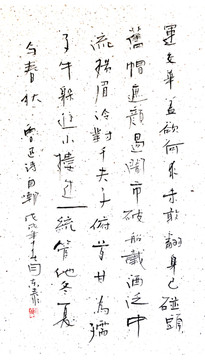 運交華蓋欲何求未敢翻身已碰頭
舊帽遮顏過鬧市破船載酒泛中
流橫眉冷對千夫指俯首甘為孺
子牛躲進小樓成一統管他冬夏
与春秋 魯迅诗自嘲 戊戌年十